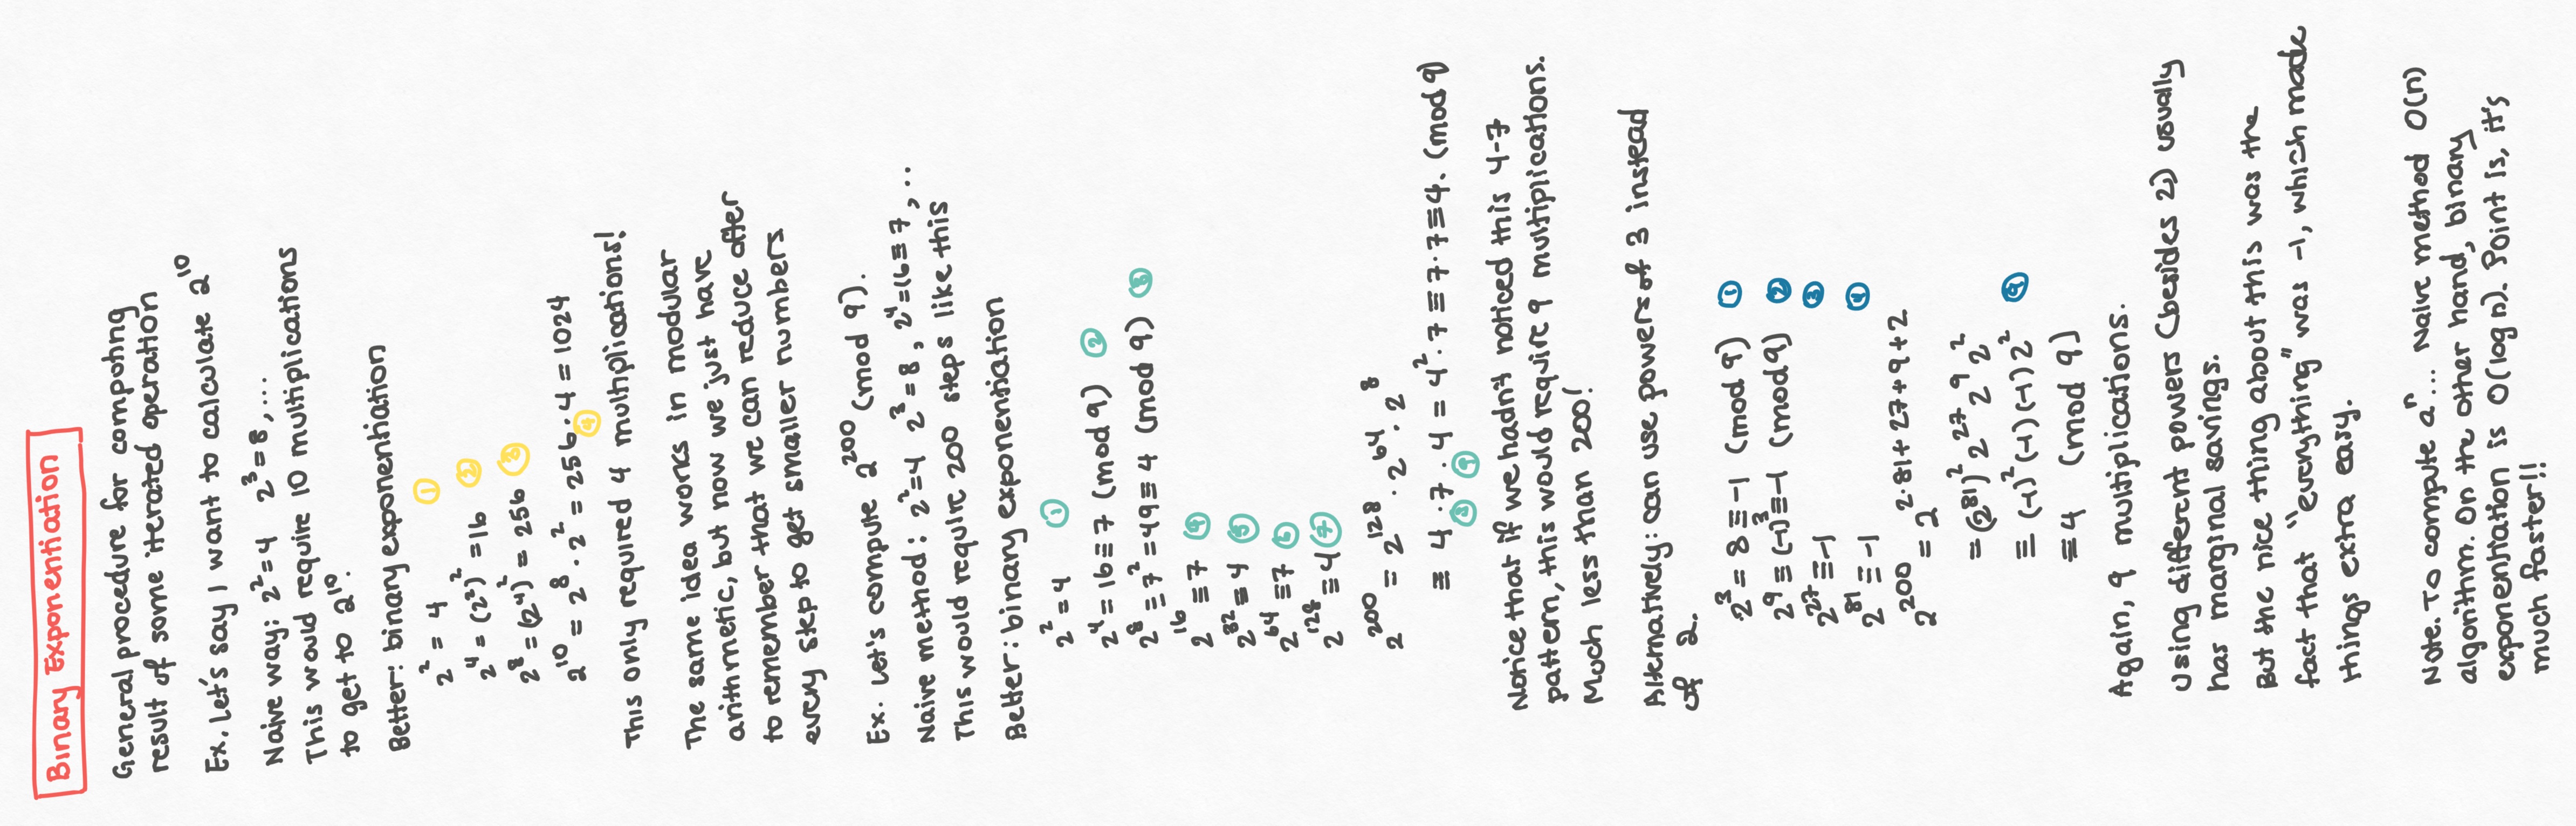 Binary Exponentiation
General procedure for computing
result of some iterated operation
Ex. Let's say I want to calculate 2^10
Naive way: 2^2=4 2^3=8,...
This would require 10 multiplications
to get to 2^10.
Better: binary exponentiation
2^2 = 4 ①
2^4 = (2^2)^2 = 16 ②
2^8 = (2^4)^2 = 256 ③
2^10 = 2^8 · 2^2 = 256 · 4 = 1024
④
This only required 4 multiplications!
The same idea works in modular
arithmetic, but now we just have
to remember that we can reduce after
every step to get smaller numbers
Ex. Let's compute 2^200 (mod 9).
Naive method: 2^2=4 2^3=8, 2^4=16≡7,..
This would require 200 steps like this
Better: binary exponentiation
2^2 = 4 ①
2^4 = 16 ≡ 7 (mod 9) ②
2^8 ≡ 7^2 = 49 ≡ 4 (mod 9) ③
2^16 ≡ 7 ④
2^32 ≡ 4 ⑤
2^64 ≡ 7 ⑥
2^128 ≡ 4 ⑦
2^200 = 2^128 · 2^64 · 2^8
≡ 4 · 7 · 4 = 4^2 · 7 ≡ 7 · 7 ≡ 4. (mod 9)
⑧ ⑨
Notice that if we hadn't noticed this 4-7
pattern, this would require 9 multiplications.
Much less than 200!
Alternatively: can use powers of 3 instead
of 2.
2^3 = 8 ≡ -1 (mod 9) ①
2^9 ≡ (-1)^3 ≡ -1 (mod 9) ②
2^27 ≡ -1 ③
2^81 ≡ -1 ④
2^200 = 2^2·81+27+9+2
= (2^81)^2 2^27 2^9 2^2
≡ (-1)^2 (-1) (-1) 2^2 ⑨
≡ 4 (mod 9)
Again, 9 multiplications.
Using different powers (besides 2) usually
has marginal savings.
But the nice thing about this was the
fact that "everything" was -1, which made
things extra easy.
Note. To compute a^n... Naive method O(n)
algorithm. On the other hand, binary
exponentiation is O(log n). Point is, it's
much faster!!